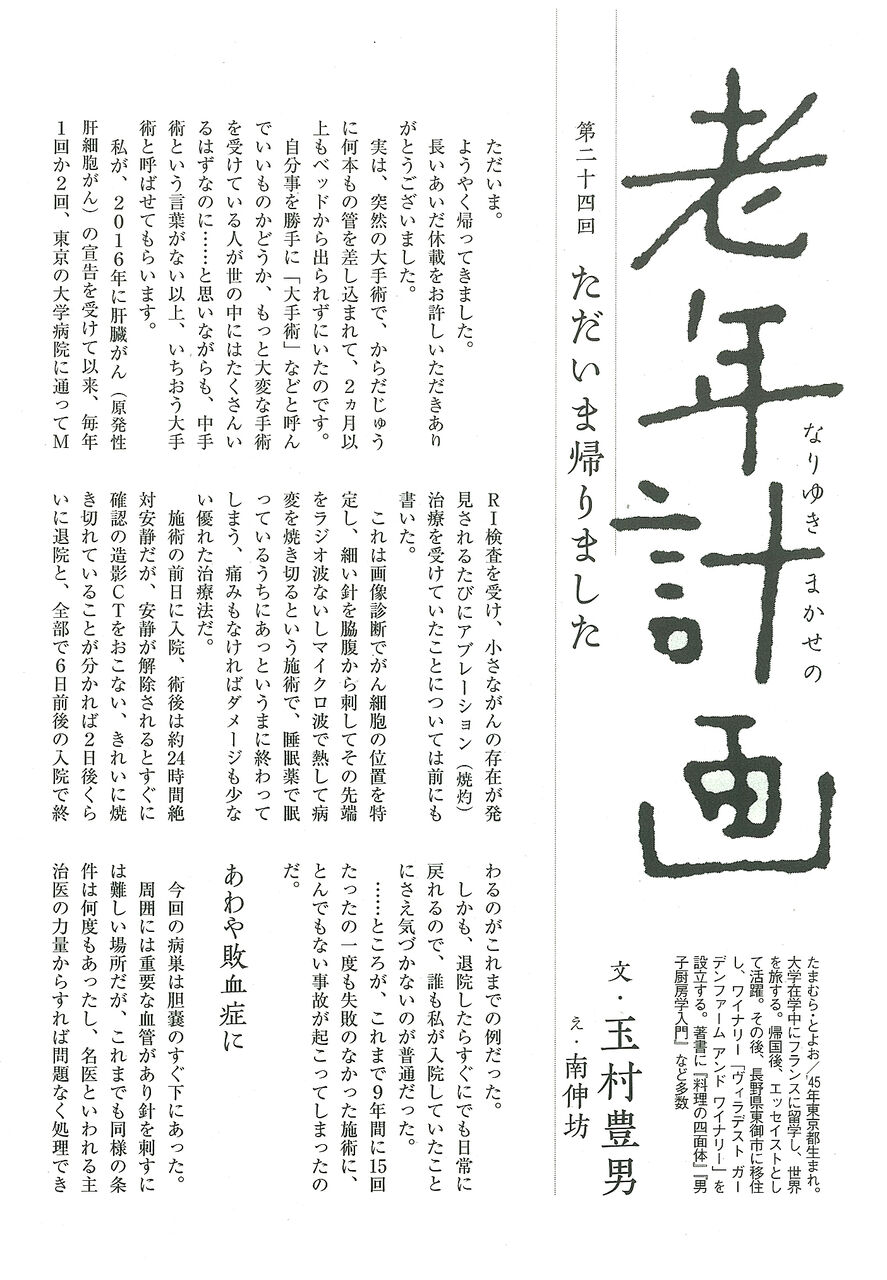 なりゆき まかせの
老年計画
第二十四回 ただいま帰りました
文・玉村豊男
え・南伸坊
たまむら・とよお／'45年東京都生まれ。
大学在学中にフランスに留学し、世界
を旅する。帰国後、エッセイストとし
て活躍。その後、長野県東御市に移住
し、ワイナリー「ヴィラデスト ガー
デンファーム アンド ワイナリー」を
設立する。著書に『料理の四面体』『男
子厨房学入門』など多数
ただいま。
ようやく帰ってきました。
長いあいだ休載をお許しいただきあり
がとうございました。
実は、突然の大手術で、からだじゅう
に何本もの管を差し込まれて、２ヵ月以
上もベッドから出られずにいたのです。
自分事を勝手に「大手術」などと呼ん
でいいものかどうか、もっと大変な手術
を受けている人が世の中にはたくさんい
るはずなのに……と思いながらも、中手
術という言葉がない以上、いちおう大手
術と呼ばせてもらいます。
私が、２０１６年に肝臓がん（原発性
肝細胞がん）の宣告を受けて以来、毎年
１回か２回、東京の大学病院に通ってＭ
ＲＩ検査を受け、小さながんの存在が発
見されるたびにアブレーション（焼灼）
治療を受けていたことについては前にも
書いた。
これは画像診断でがん細胞の位置を特
定し、細い針を脇腹から刺してその先端
をラジオ波ないしマイクロ波で熱して病
変を焼き切るという施術で、睡眠薬で眠
っているうちにあっというまに終わって
しまう、痛みもなければダメージも少な
い優れた治療法だ。
施術の前日に入院、術後は約24時間絶
対安静だが、安静が解除されるとすぐに
確認の造影ＣＴをおこない、きれいに焼
き切れていることが分かれば２日後くら
いに退院と、全部で６日前後の入院で終
わるのがこれまでの例だった。
しかも、退院したらすぐにでも日常に
戻れるので、誰も私が入院していたこと
にさえ気づかないのが普通だった。
……ところが、これまで９年間に15回
たったの一度も失敗のなかった施術に、
とんでもない事故が起こってしまったの
だ。
あわや敗血症に
今回の病巣は胆嚢のすぐ下にあった。
周囲には重要な血管があり針を刺すに
は難しい場所だが、これまでも同様の条
件は何度もあったし、名医といわれる主
治医の力量からすれば問題なく処理でき